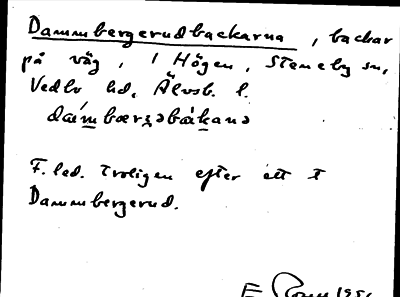 Dammbergerudbackarna, backar
på väg, i Högen, Steneby sn,
Vedbo hd, Älvsb. l.
dám̲bærgəbàkanə
F. led. troligen efter ett †
Dammbergerud.
E